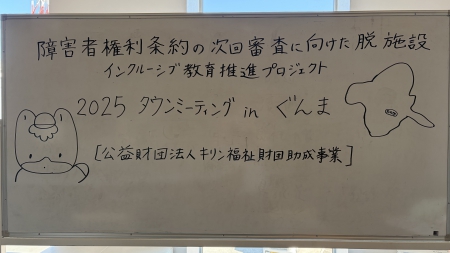 障害者権利条約の次回審査に向けた脱施設
インクルーシブ教育推進プロジェクト
2025 タウンミーティング in ぐんま
[公益財団法人キリン福祉財団助成事業]